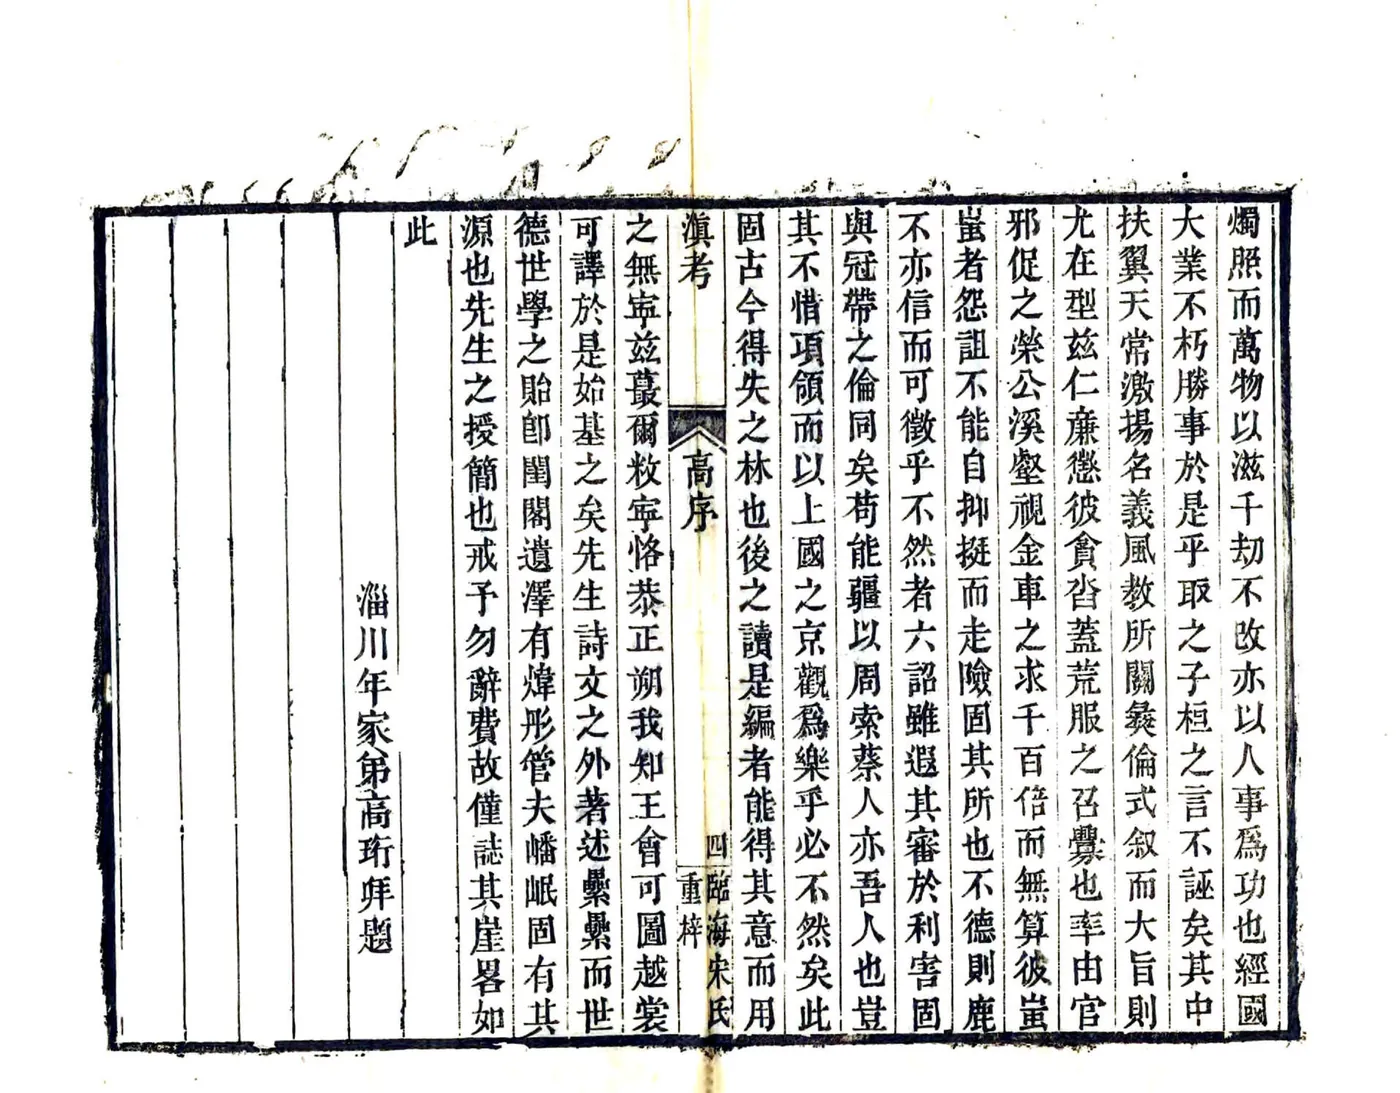 燭照而萬物以滋千劫不改亦以人事爲功也經國
大業不朽勝事於是乎取之子桓之言不誣矣其中
扶翼天常激揚名義風教所關彜倫式叙而大旨則
尤在型兹仁廉懲彼貪沓蓋荒服之召釁也率由官
邪促之榮公溪壑視金車之求千百倍而無算彼蚩
蚩者怨詛不能自抑挺而走險固其所也不德則鹿
不亦信而可徵乎不然者六詔雖遐其審於利害固
與冠帶之倫同矣苟能疆以周索蔡人亦吾人也豈
其不惜項領而以上國之京觀爲樂乎必不然矣此
固古今得失之林也後之讀是編者能得其意而用
滇考
高序
四
臨海宋氏
重梓
之無寜兹蕞爾敉寜恪恭正朔我知王會可圖越裳
可譯於是始基之矣先生詩文之外著述纍纍而世
德世學之貽卽閨閣遺澤有煒彤管夫皤岷固有其
源也先生之授簡也戒予勿辭費故僅誌其崖畧如
此
淄川年家弟高珩拜題